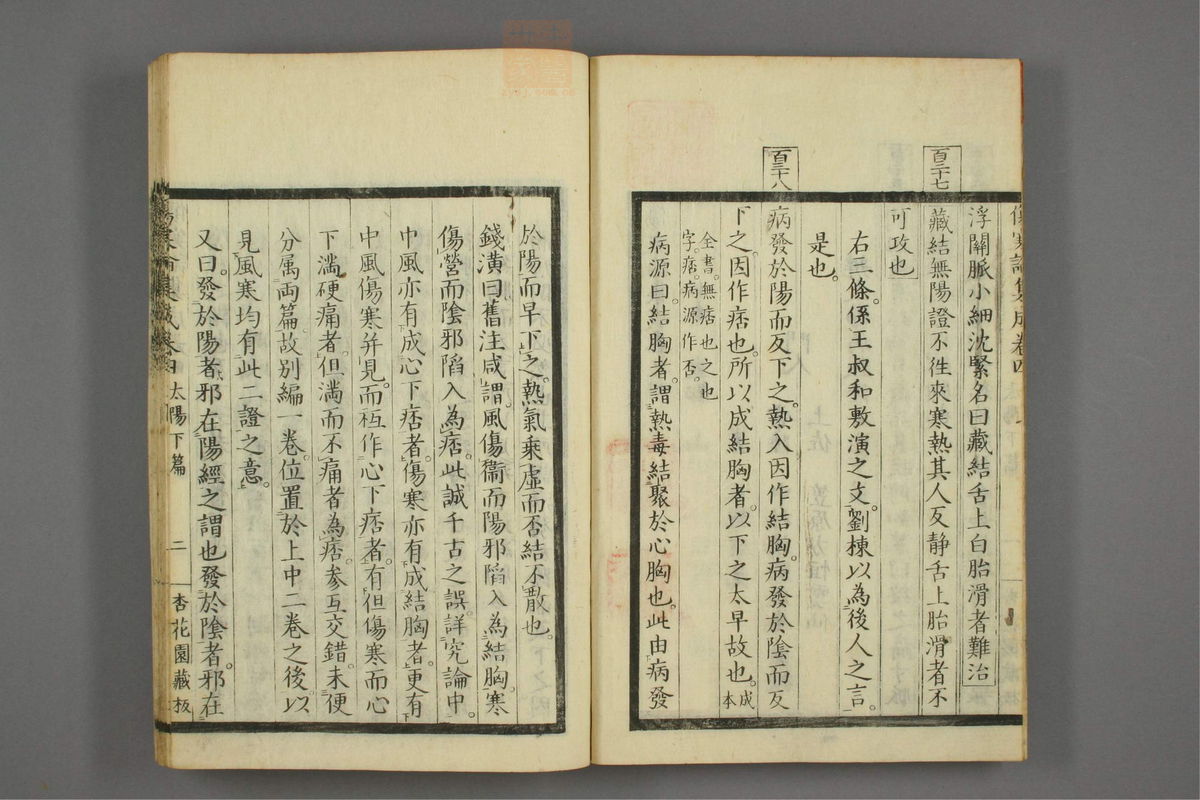 傷寒論集成卷四
浮關脈小細沈緊名曰藏結舌上白胎滑者難治
百三十七
藏結無陽證不徃來寒熱其人反静舌上胎滑者不
可攻也
右三條係王叔和敷演之文劉棟以為後人之言
是也
百三十八
病發於陽而反下之熱入因作結胸病發於陰而反
下之因作痞也所以成結胸者以下之太早故也成本
全書無痞也之也
字痞病源作否
病源曰結胸者謂熱毒結聚於心胸也此由病發
於陽而早下之熱氣乘虛而否結不散也
錢潢曰舊注咸謂風傷衞而陽邪陷入為結胸寒
傷營而陰邪陷入為痞此誠千古之誤詳究論中
中風亦有成心下痞者傷寒亦有成結胸者更有
中風傷寒并見而柸作心下痞者有但傷寒而心
下滿硬痛者但滿而不痛者為痞参互交錯未便
分属両篇故别編一卷位置於上中二卷之後以
見風寒均有此二證之意
又曰發於陽者邪在陽經之謂也發於陰者邪在
傷寒論集成卷四 太陽下篇 二 杏花園藏板